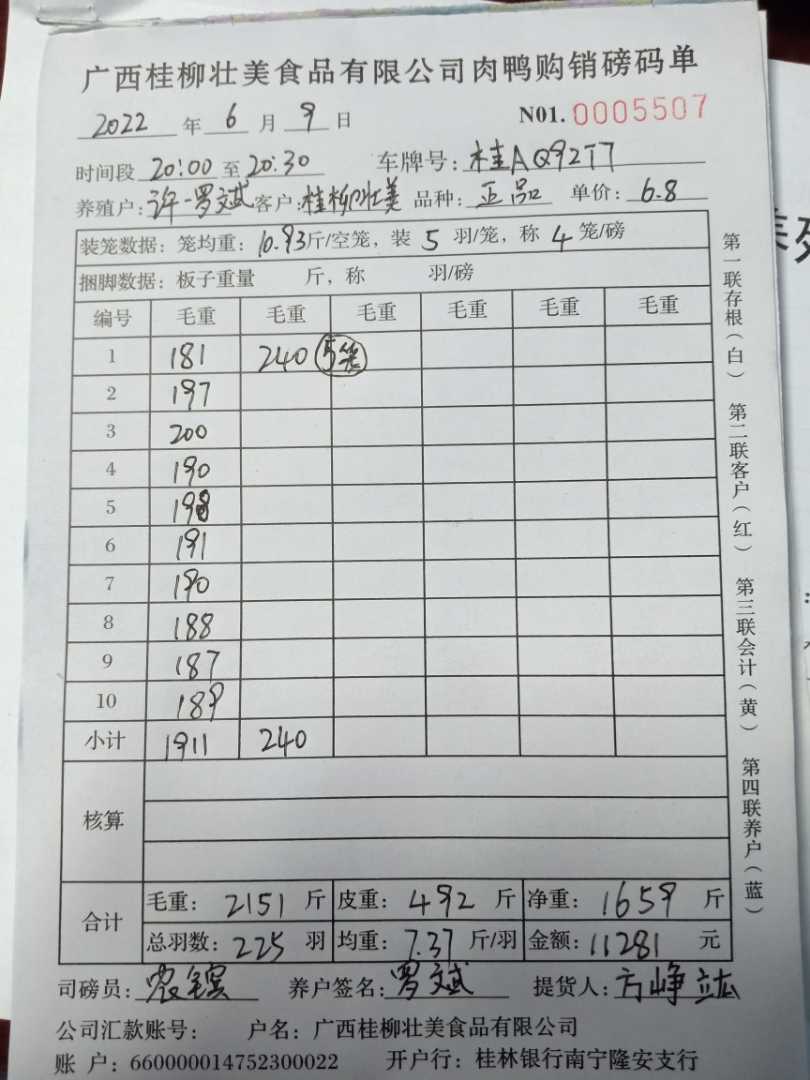 广西桂柳壮美食品有限公司肉鸭购销磅码单
2022 年 6 月 9 日 N01. 0005507
时间段 20:00 至 20:30 车牌号: 桂AQ92T7
养殖户: 许一罗文斌 客户: 桂柳壮美 品种: 正品 单价: 6.8
装笼数据: 笼均重: 10.93 斤/空笼, 装 5 羽/笼, 称 4 笼/磅
捆脚数据: 板子重量 斤, 称 羽/磅
编号 毛重 毛重 毛重 毛重 毛重 毛重
1 181 240 5笼
2 197
3 200
4 190
5 198
6 191
7 190
8 188
9 187
10 189
小计 1911 240
核算
合计 毛重: 2151 斤 皮重: 492 斤 净重: 1659 斤
总羽数: 225 羽 均重: 7.37 斤/羽 金额: 11281 元
司磅员: 养户签名: 罗文斌 提货人: 方峥
公司汇款账号: 户名: 广西桂柳壮美食品有限公司
账 户: 660000014752300022 开户行: 桂林银行南宁隆安支行
第一联存根(白) 第二联客户(红) 第三联会计(黄) 第四联养户(蓝)